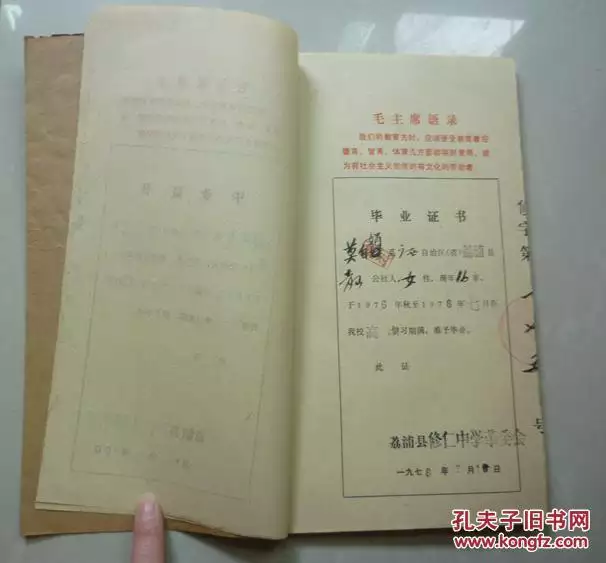 毛主席语录
我们的教育方针，应该使受教育者在
德育、智育、体育几方面都得到发展，成
为有社会主义觉悟的有文化的劳动者
毕业证书
莫 系广西自治区(省)荔浦县
公社人，女性，现年16岁。
于1976年秋至1978年 月在
我校高 学习期满，准予毕业。
此证
荔浦县修仁中学革委会
一九七8年7月 日
修
字
第
号
孔夫子旧书网
www.kongfz.com